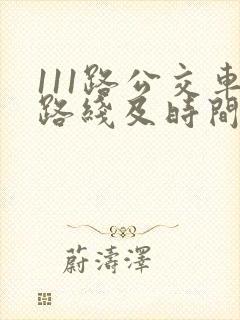 111路公交車
路綫及時間
蔚濤澤